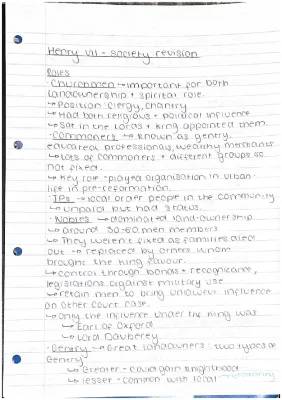 Henry VII - society revision
Roles
· Churchmen → important for both
landownership + spiritual role.
↳ Position: clergy, chantry
↳ Had both religious + political influence
↳ Sat in the Lords + king appointed them.
· Commoners → known as gentry.
educated professionals, wealthy merchants
↳ Lots of commoners + different groups so
not fixed.
↳ Key role - played organisation in urban
life in pre-reformation.
· JPs → local order people in the community
↳ unpaid but had status.
· Nobles → dominated land-ownership
↳ around 50-60 men members
↳ They weren't fixed as families died
out → replaced by others whom
brought the king favour.
↳ control through bonds + recognisance,
legislations against military use
↳ retain men to bring unlawful influence
on other court case.
↳ Only the influence under the king was
↳ Earl of Oxford
↳ Lord Daubeney
· Gentry → Great landowners: two types of
Gentry
↳ Greater - could gain knighthood
↳ lesser - common with local